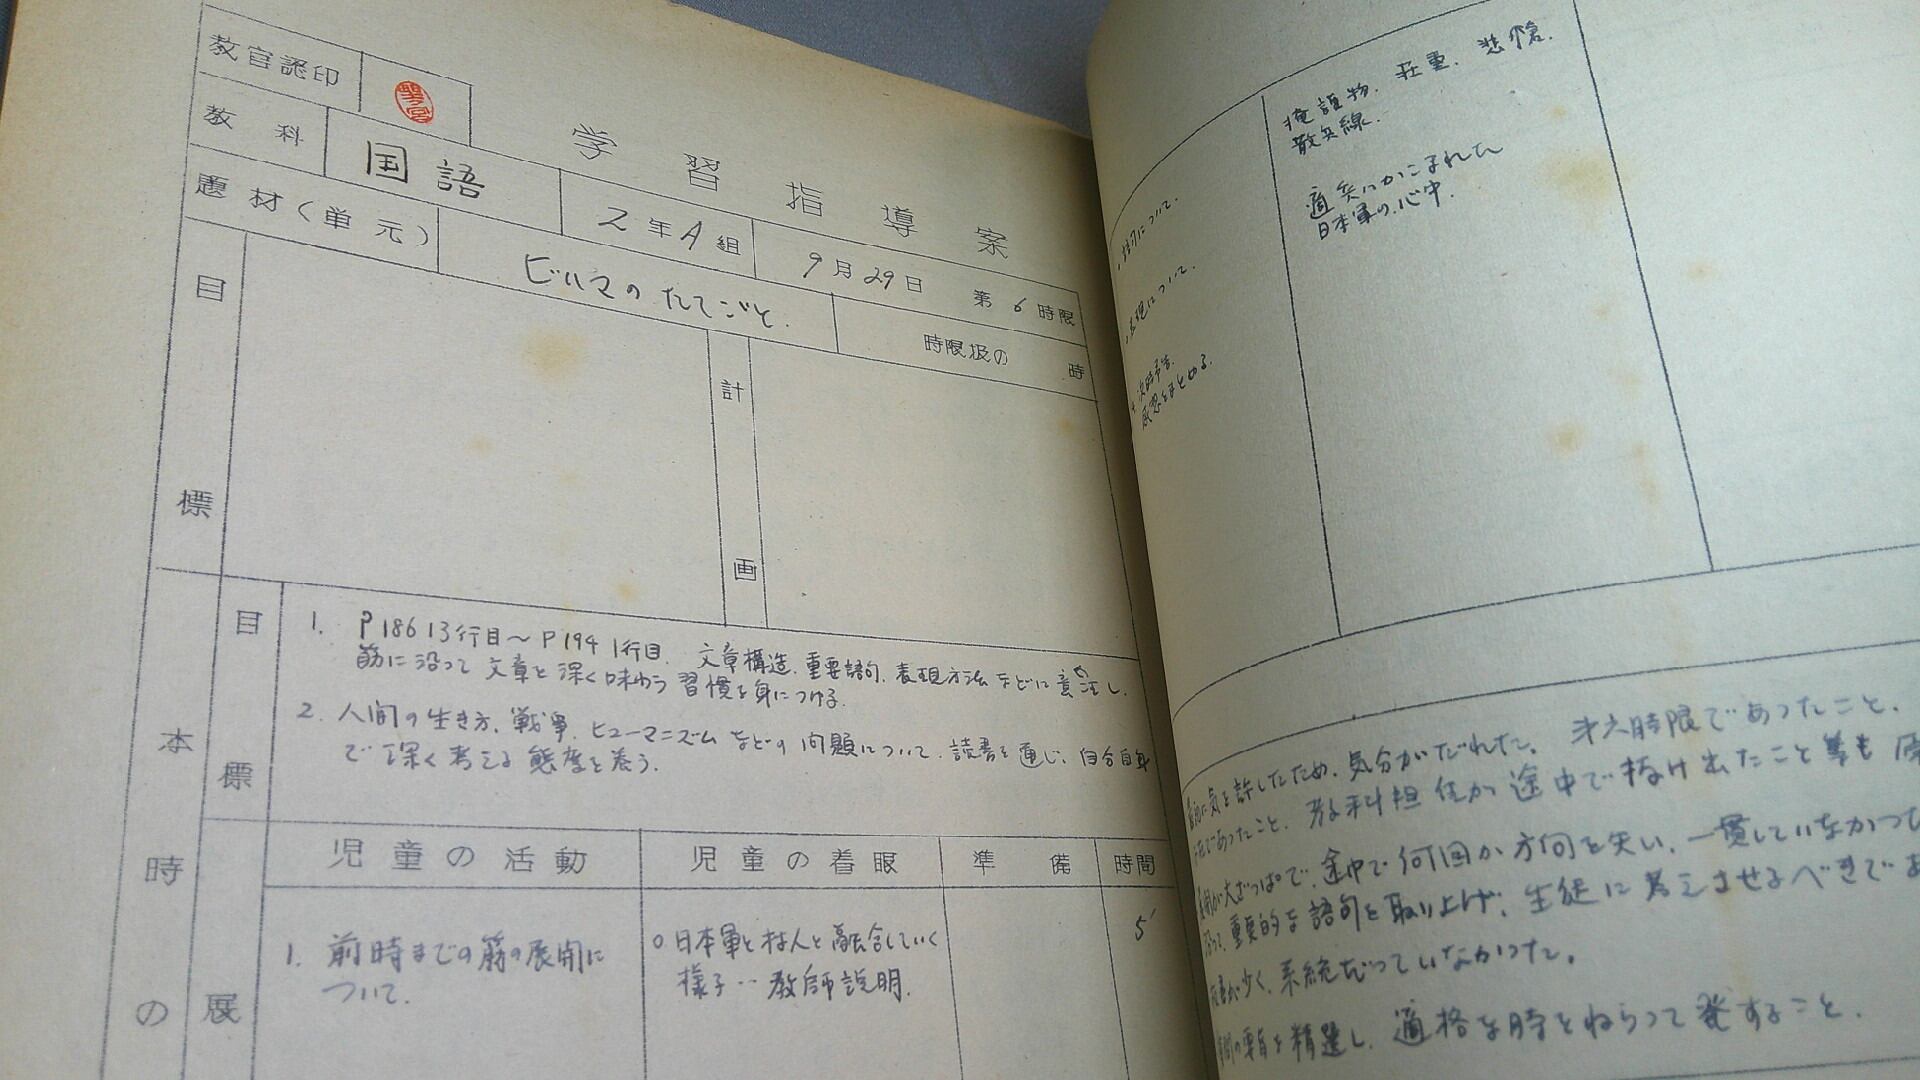 教官認印
学習指導案
教科 国語 2年A組 9月29日 第6時限
題材(単元) ビルマのたてごと. 時限扱の 時
目標
計画
本時の
目標
1. P186 13行目〜P194 1行目. 文章構造、重要語句、表現方法などに注意し、
筋に沿って文章を深く味わう習慣を身につける.
2. 人間の生き方、戦争、ヒューマニズムなどの問題について、読書を通じ、自分自身
で深く考える態度を養う.
展
児童の活動 児童の着眼 準備 時間
1. 前時までの筋の展開に
ついて.
○日本軍と村人と融合していく
様子‥教師説明.
5'
掩護物. 荘重. 悲愴.
散兵線.
適兵にかこまれた
日本軍の心中.
について.
表現について.
次時予告.
感想をまとめる.
気を許したため、気分がだれた。才六時限であったこと、
であったこと、教科担任が途中で抜け出たこと等も
大ざっぱで、途中で何回か方向を失い、一貫していなかった
重要的な語句を取り上げ、生徒に考えさせるべきで
少く、系統だっていなかった。
精選し、適格な時をねらって発すること.